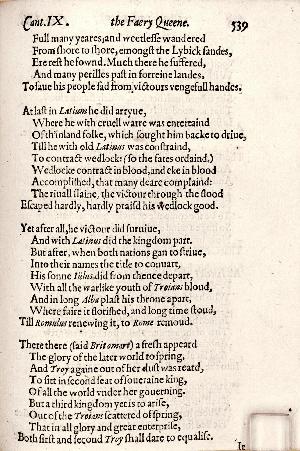 Cant.IX. the Faery Queene. 539
Full many yeares, and weetlesse wandered
From shore to shore, emongst the Lybick sandes,
Ere rest he fownd. Much there he suffered,
And many perilles past in forreine landes,
To saue his people sad from victours vengefull handes.
At last in Latium he did arryue,
Where he with cruell warre was entertaind
Of th'inland folke, which sought him backe to driue,
Till he with old Latinus was constraind,
To contract wedlock: (so the fates ordaind.)
Wedlocke contract in blood, and eke in blood
Accomplished, that many deare complaind:
The riuall slaine, the victour through the flood
Escaped hardly, hardly praisd his wedlock good.
Yet after all, he victour did suruiue,
And with Latinus did the kingdom part.
But after, when both nations gan to striue,
Into their names the title to conuart,
His sonne Iülus did from thence depart,
With all the warlike youth of Troians bloud,
And in long Alba plast his throne apart,
Where faire it florished, and long time stoud,
Till Romulus renewing it, to Rome remoud.
There there (said Britomart) a fresh appeard
The glory of the later world to spring,
And Troy againe out of her dust was reard,
To sitt in second seat of soueraine king,
Of all the world vnder her gouerning.
But a third kingdom yet is to arise,
Out of the Troians scattered ofspring,
That in all glory and great enterprise,
Both first and second Troy shall dare to equalise.
It